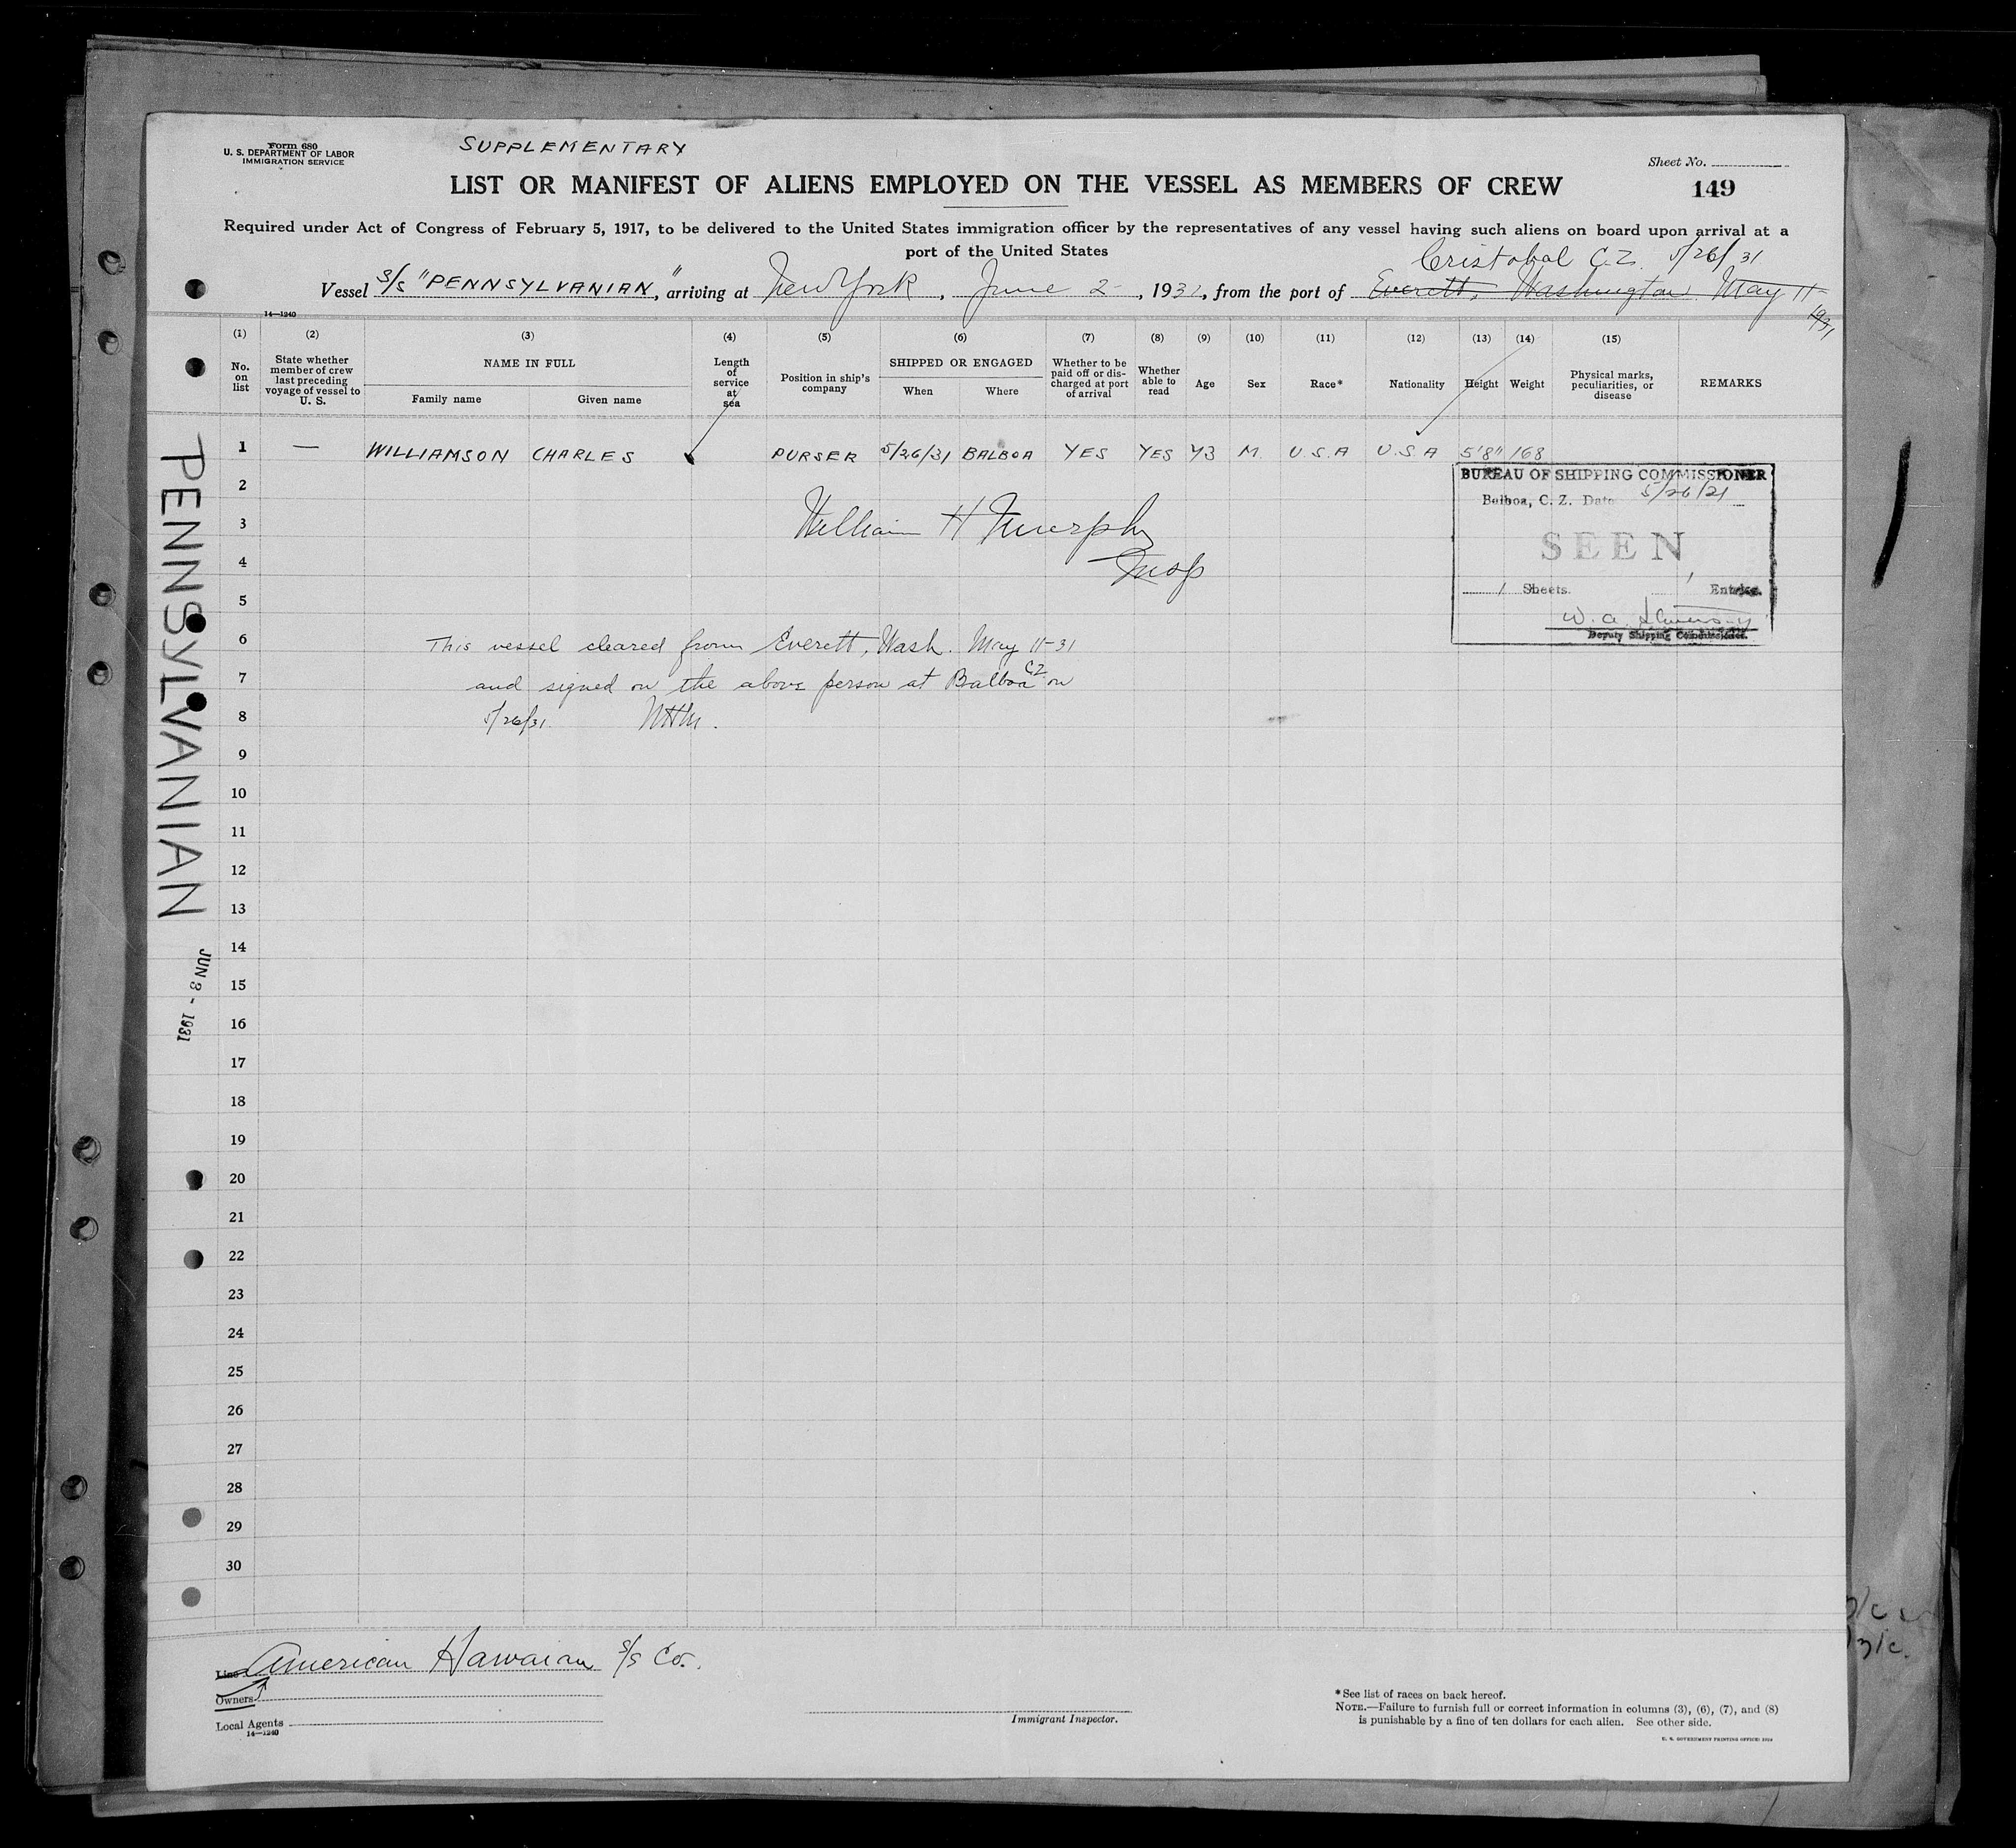 Form 680
U. S. DEPARTMENT OF LABOR
IMMIGRATION SERVICE
SUPPLEMENTARY
Sheet No.
149
LIST OR MANIFEST OF ALIENS EMPLOYED ON THE VESSEL AS MEMBERS OF CREW
Required under Act of Congress of February 5, 1917, to be delivered to the United States immigration officer by the representatives of any vessel having such aliens on board upon arrival at a
port of the United States
Cristobal C.Z. 5/26/31
Vessel S/S "PENNSYLVANIAN", arriving at New York, June 2, 1931, from the port of Everett, Washington May 11
1931
14—1240
(1) (2) (3) (4) (5) (6) (7) (8) (9) (10) (11) (12) (13) (14) (15)
No. on list
State whether member of crew last preceding voyage of vessel to U. S.
NAME IN FULL
Family name
Given name
Length of service at sea
Position in ship's company
SHIPPED OR ENGAGED
When
Where
Whether to be paid off or discharged at port of arrival
Whether able to read
Age
Sex
Race*
Nationality
Height
Weight
Physical marks, peculiarities, or disease
REMARKS
1 — WILLIAMSON CHARLES PURSER 5/26/31 BALBOA YES YES 43 M. U.S.A U.S.A 5'8" 168
BUREAU OF SHIPPING COMMISSIONER
Balboa, C. Z. Date 5/26/31
SEEN
1 Sheets. 1 Entries.
W. A.
Deputy Shipping Commissioner.
2
3 William H Murphy
4 Insp
5
6 This vessel cleared from Everett, Wash. May 11-31
7 and signed on the above person at Balboa CZ on
8 5/26/31. WHM.
9
10
11
12
13
14
15
16
17
18
19
20
21
22
23
24
25
26
27
28
29
30
PENNSYLVANIAN
JUN 3 - 1931
Line American Hawaian S/S Co.
Owners
Local Agents
14—1240
Immigrant Inspector.
*See list of races on back hereof.
NOTE.—Failure to furnish full or correct information in columns (3), (6), (7), and (8)
is punishable by a fine of ten dollars for each alien. See other side.